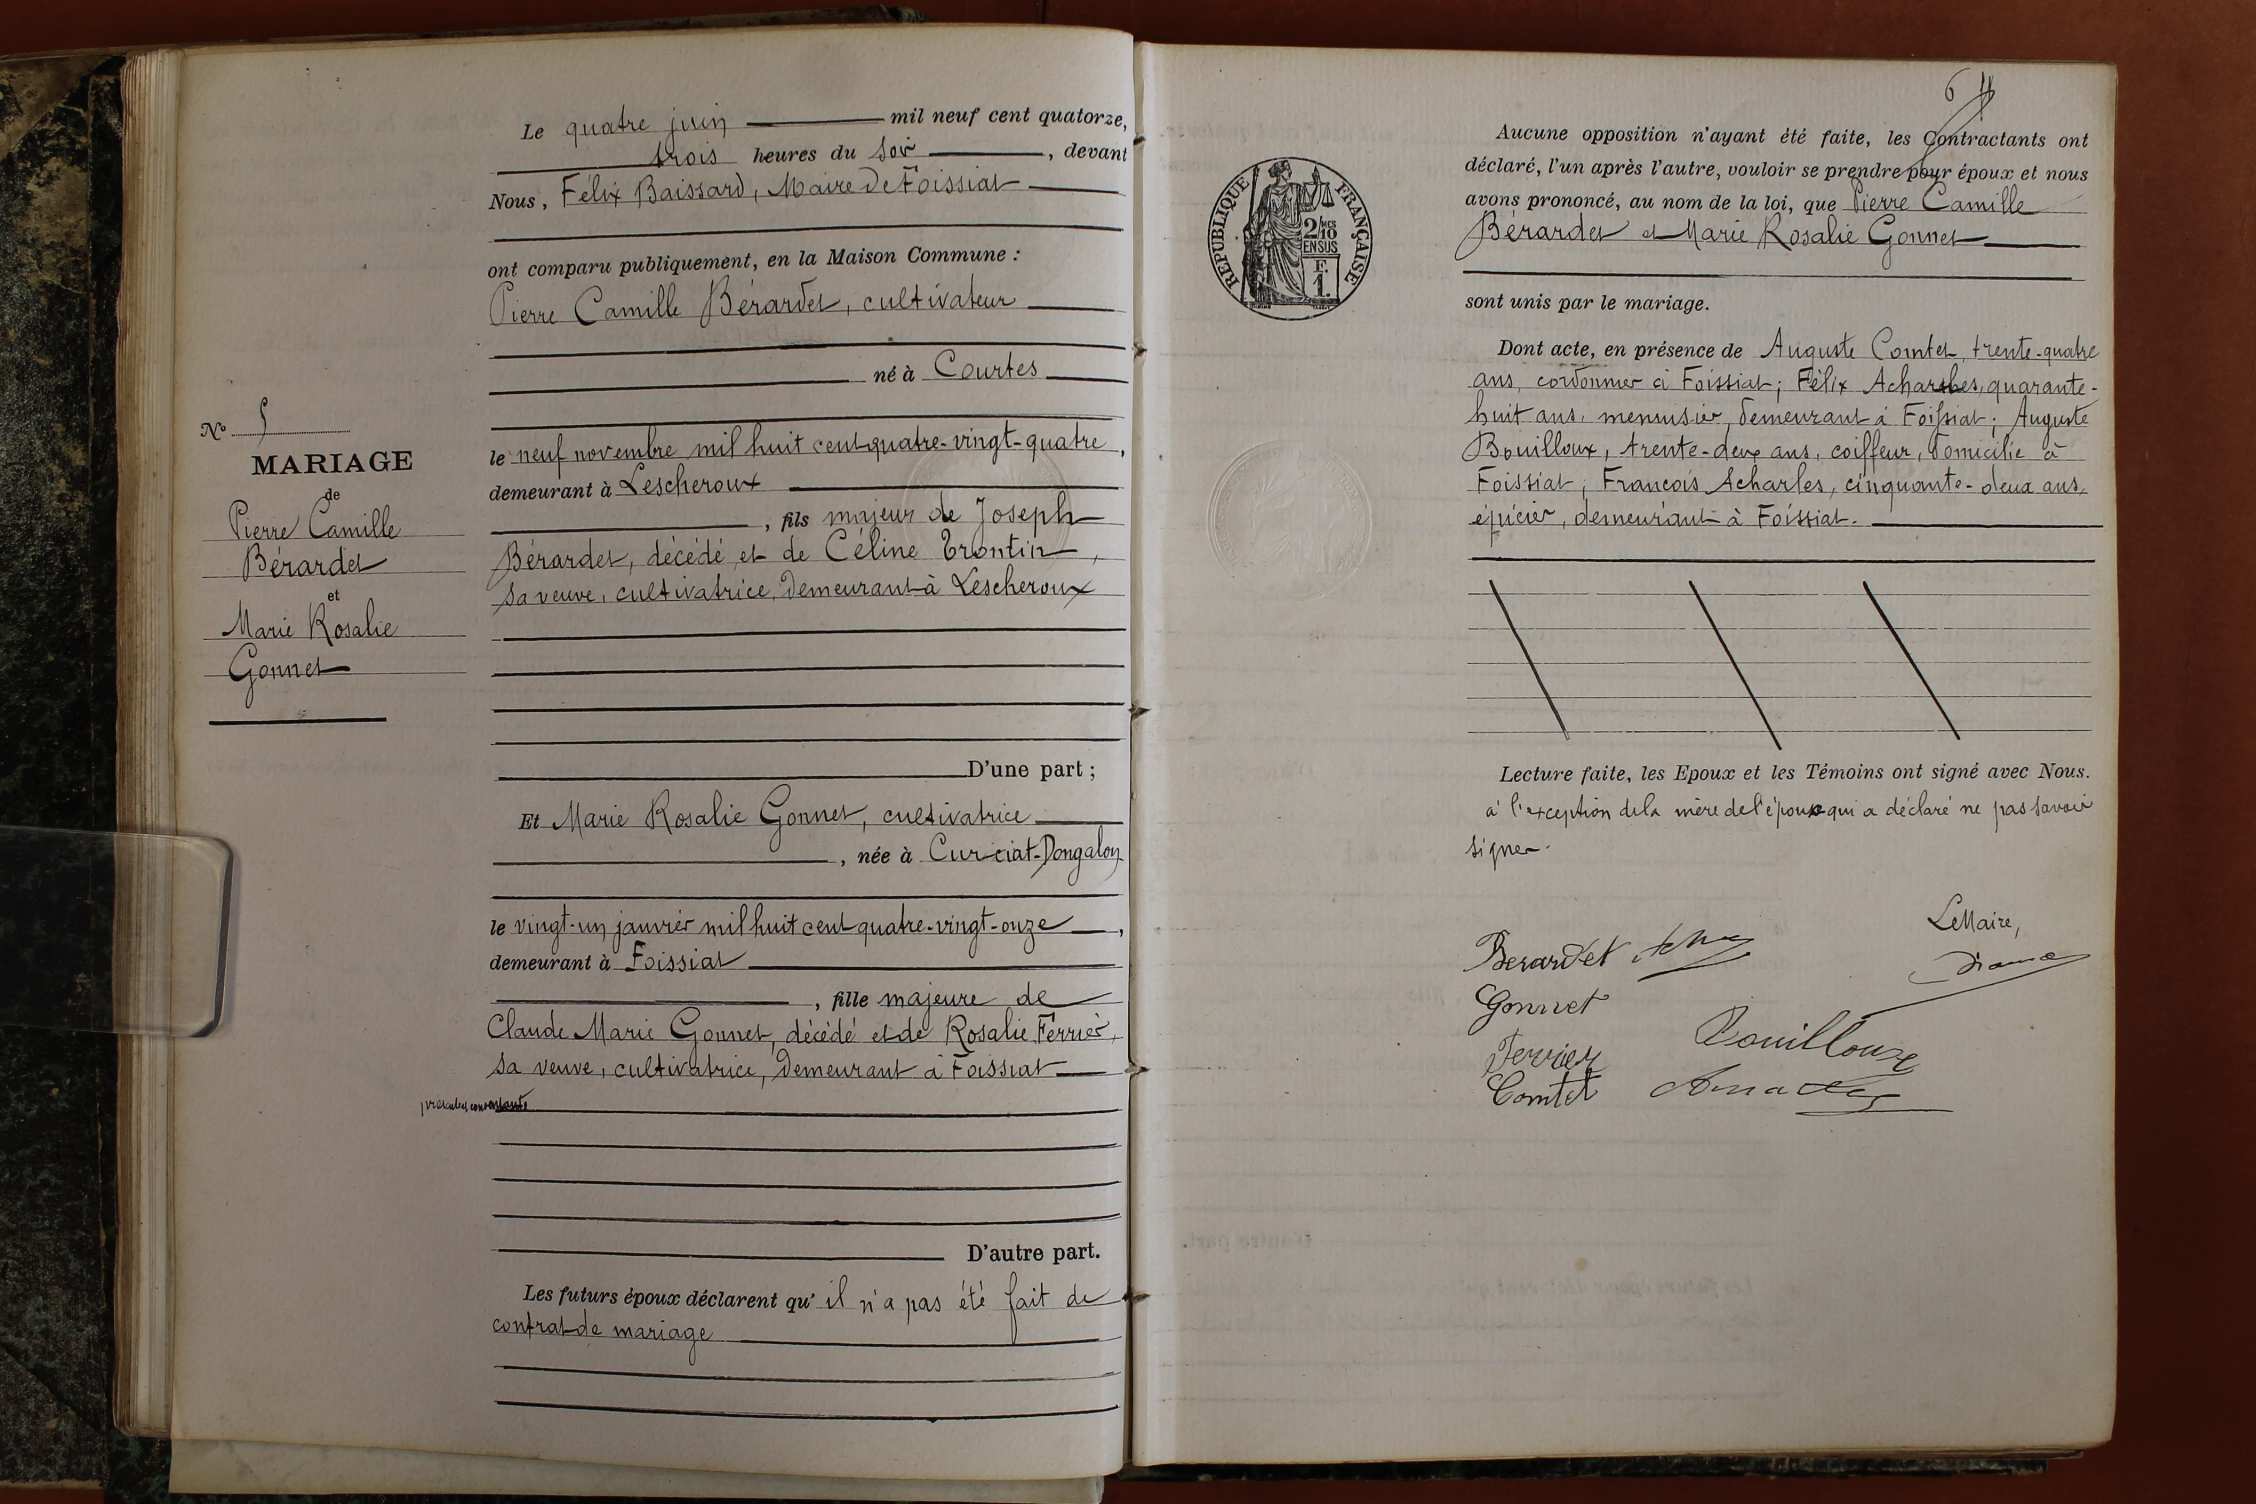 Le quatre juin mil neuf cent quatorze,
trois heures du soir, devant
Nous, Félix Baissard, Maire de Foissiat
ont comparu publiquement, en la Maison Commune :
Pierre Camille Bérardet, cultivateur
né à Courtes
N° 5
MARIAGE
de
Pierre Camille
Bérardet
et
Marie Rosalie
Gonnet
le neuf novembre mil huit cent quatre-vingt-quatre,
demeurant à Lescheroux
, fils majeur de Joseph
Bérardet, décédé et de Céline Trontin,
sa veuve, cultivatrice, demeurant à Lescheroux
D'une part ;
Et Marie Rosalie Gonnet, cultivatrice
, née à Curciat-Dongalon
le vingt-un janvier mil huit cent quatre-vingt-onze,
demeurant à Foissiat
, fille majeure de
Claude Marie Gonnet, décédé et de Rosalie Ferrier,
sa veuve, cultivatrice, demeurant à Foissiat
D'autre part.
Les futurs époux déclarent qu'il n'a pas été fait de
contrat de mariage
6
RÉPUBLIQUE FRANÇAISE
2/10
EN SUS
F.
1.
Aucune opposition n'ayant été faite, les Contractants ont
déclaré, l'un après l'autre, vouloir se prendre pour époux et nous
avons prononcé, au nom de la loi, que Pierre Camille
Bérardet et Marie Rosalie Gonnet
sont unis par le mariage.
Dont acte, en présence de Auguste Comtet, trente-quatre
ans, cordonnier à Foissiat ; Félix Acharles, quarante-
huit ans, menuisier, demeurant à Foissiat ; Auguste
Bouilloux, trente-deux ans, coiffeur, domicilié à
Foissiat ; François Acharles, cinquante-deux ans,
épicier, demeurant à Foissiat.
Lecture faite, les Epoux et les Témoins ont signé avec Nous.
à l'exception de la mère de l'époux qui a déclaré ne pas savoir
signer.
Le Maire,
Berardet
Gonnet
Bouilloux
Ferrier
Comtet